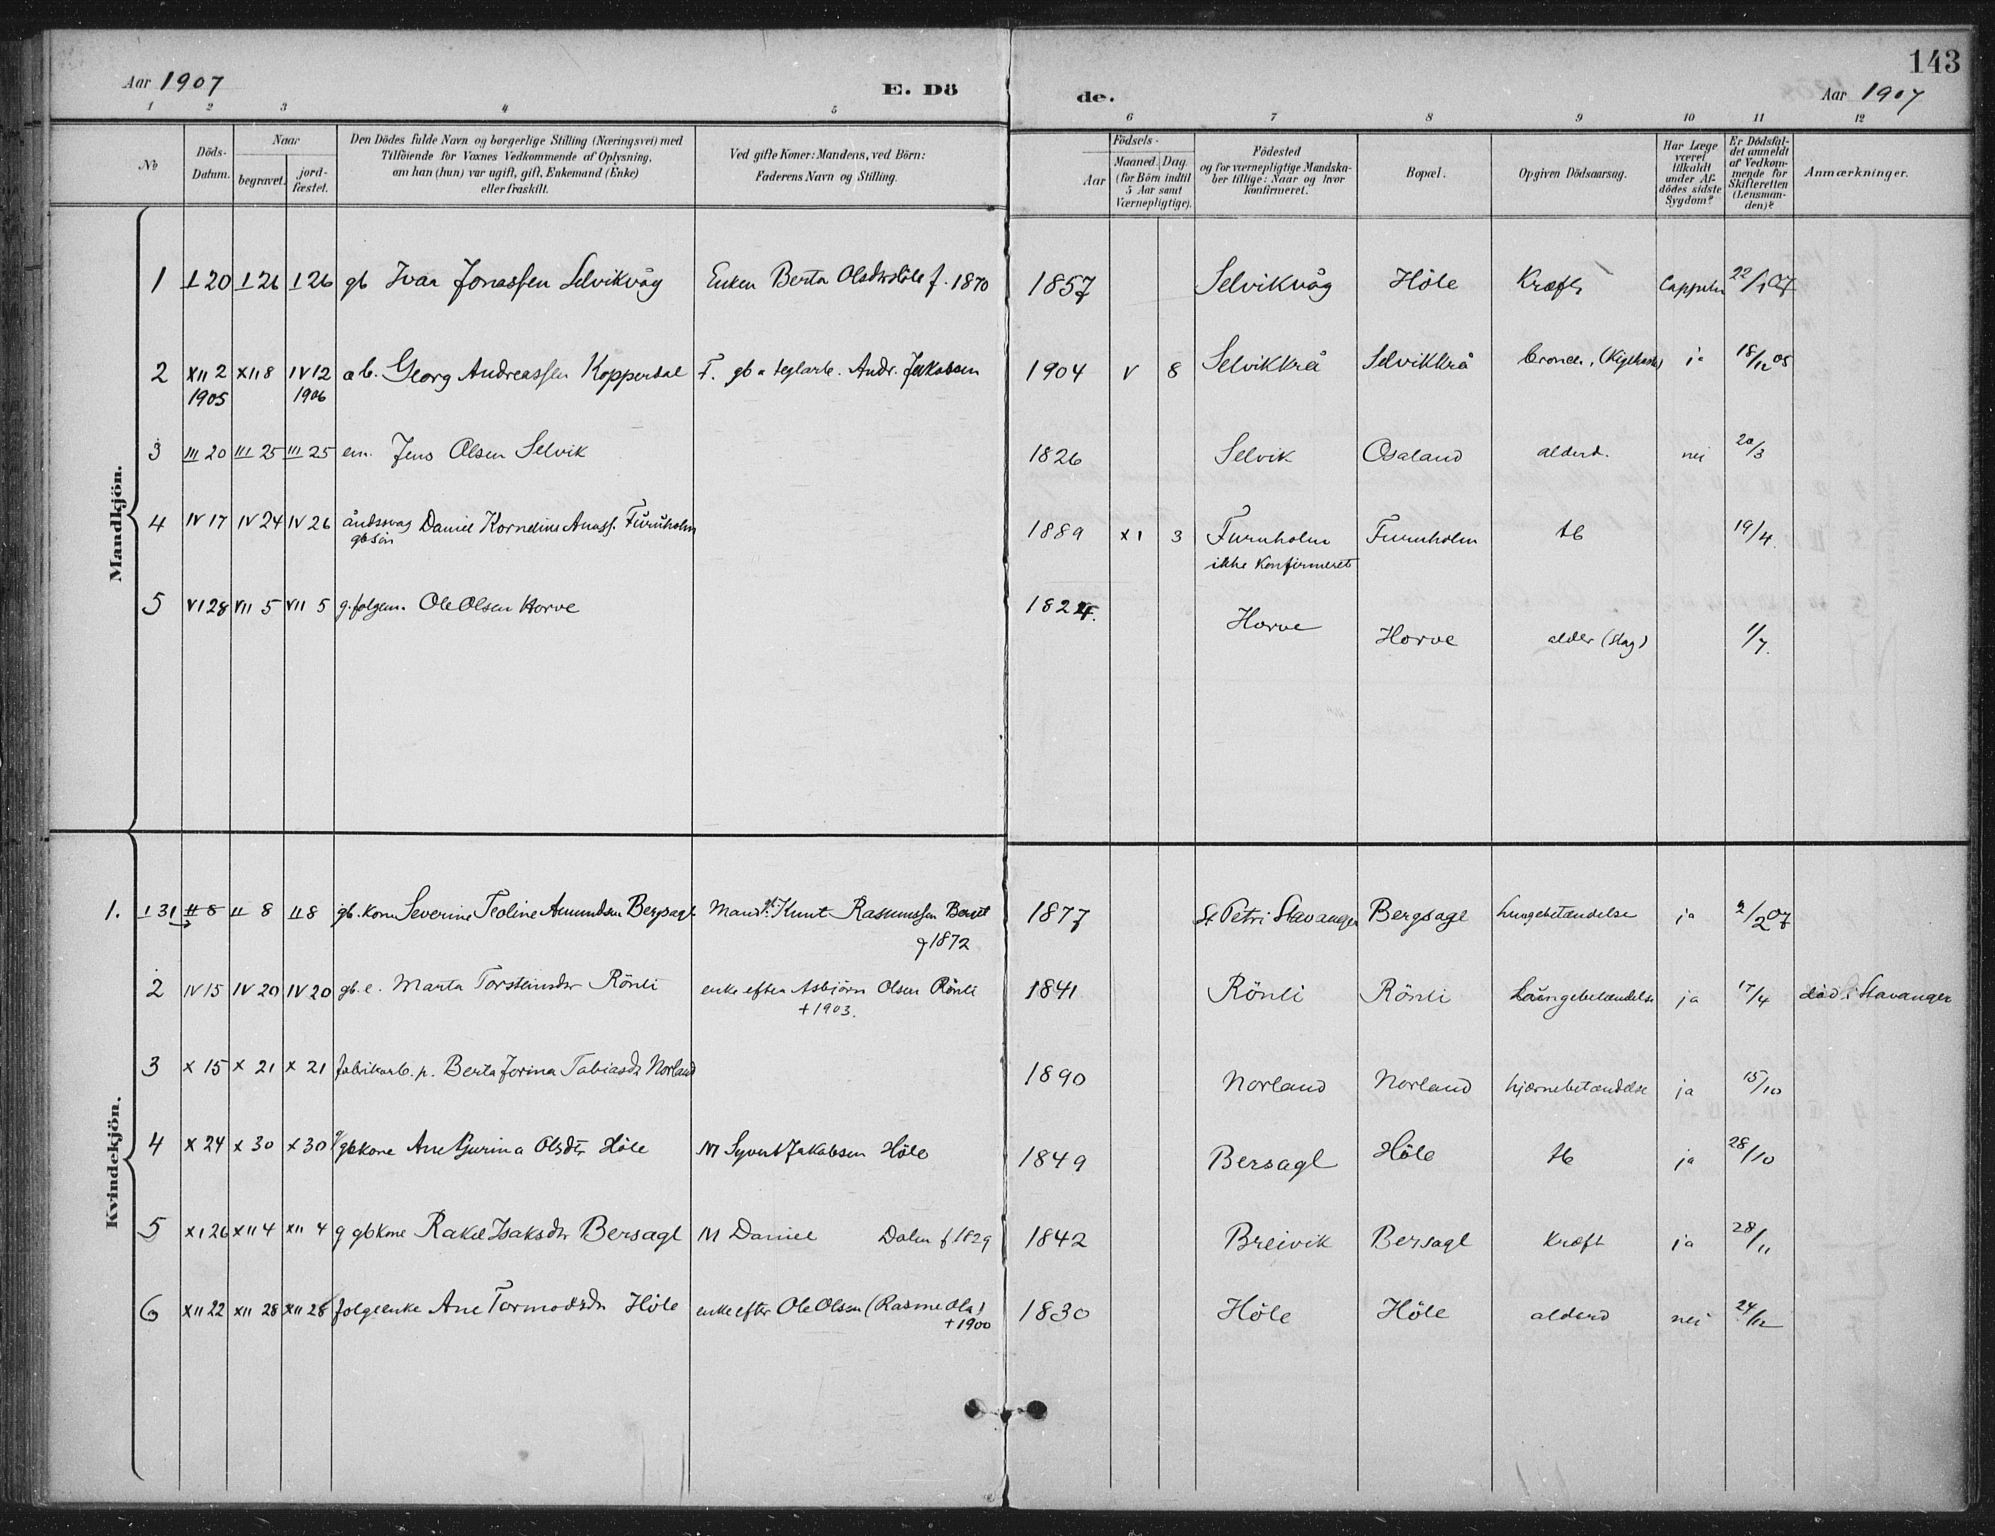 143
Aar 1907 E. Dö de. Aar 1907
1 2 3 4 5 6 7 8 9 10 11 12
№
Döds-Datum.
Naar
begravet.
jord-fæstet.
Den Dödes fulde Navn og borgerlige Stilling (Næringsvei) med
Tilföiende for Voxnes Vedkommende af Oplysning,
om han (hun) var ugift, gift, Enkemand (Enke)
eller fraskilt.
Ved gifte Koner: Mandens, ved Börn:
Faderens Navn og Stilling.
Födsels-
Aar
Maaned. Dag.
(for Börn indtil
5 Aar samt
Værnepligtige).
Födested
og for værnepligtige Mandska-
ber tillige: Naar og hvor
konfirmeret.
Bopæl.
Opgiven Dödsaarsag.
Har Læge
været
tilkaldt
under Af-
dödes sidste
Sygdom?
Er Dödsfal-
det anmeldt
af Vedkom-
mende for
Skifteretten
(Lensman-
den)?
Anmærkninger.
Mandkjön.
1 I 20 I 26 I 26 gb Ivar Jonassen Selvikvåg Enken Berta Olsdr Höle f. 1870 1857 Selvikvåg Höle Kræft Cappelen 22/1 07
2 XII 2 XII 8 IV 12 Georg Andreassen Kopperdal F. gb a teglarb. Andr. Jakobsen 1904 V 8 Selvikkrå Selvikkrå ja 18/12 05
1905 1906
3 III 20 III 25 III 25 em. Jens Olsen Selvik 1826 Selvik Osaland alderd. nei 20/3
4 IV 17 IV 24 IV 26 åndssvag Daniel Kornelius Furuholm 1889 XI 3 Furuholm Furuholm tb 19/4.
gbsön ikke Konfirmeret
5 VI 28 VII 5 VII 5 g. folgem. Ole Olsen Horve 1824. Horve Horve alder (slag) 1/7.
Kvindekjön.
1. I 31 II 8 II 8 II 8 gb. kone Severine Teoline Amundsen Bergsagl Mand Knut Rasmussen 1877 St Petri Stavanger Bergsagl Lungebetændelse ja 2/2 07
1872
2 IV 15 IV 20 IV 20 gb. e. Marta Torsteinsdr Rönli enke efter Asbjörn Olsen Rönli 1841 Rönli Rönli Lungebetændelse ja 17/4 död i Stavanger
+ 1903.
3 X 15 X 21 X 21 fabrikarb. p. Berta Jorina Tobiasdr Norland 1890 Norland Norland hjernebetændelse ja 15/10
4 X 24 X 30 X 30 g gbkone Ane Gurina Olsdr Höle M Syvert Jakobsen Höle 1849 Bersagl Höle tb ja 28/10
5 XI 26 XII 4 XII 4 g gbkone Rakel Isaksdr Bersagl M Daniel Dalen f 1829 1842 Breivik Bersagl Kræft ja 28/11
6 XII 22 XII 28 XII 28 folgeenke Ane Tormodsdr Höle enke efter Ole Olsen (Rasme Ola) 1830 Höle Höle alderd nei 24/12
+ 1900